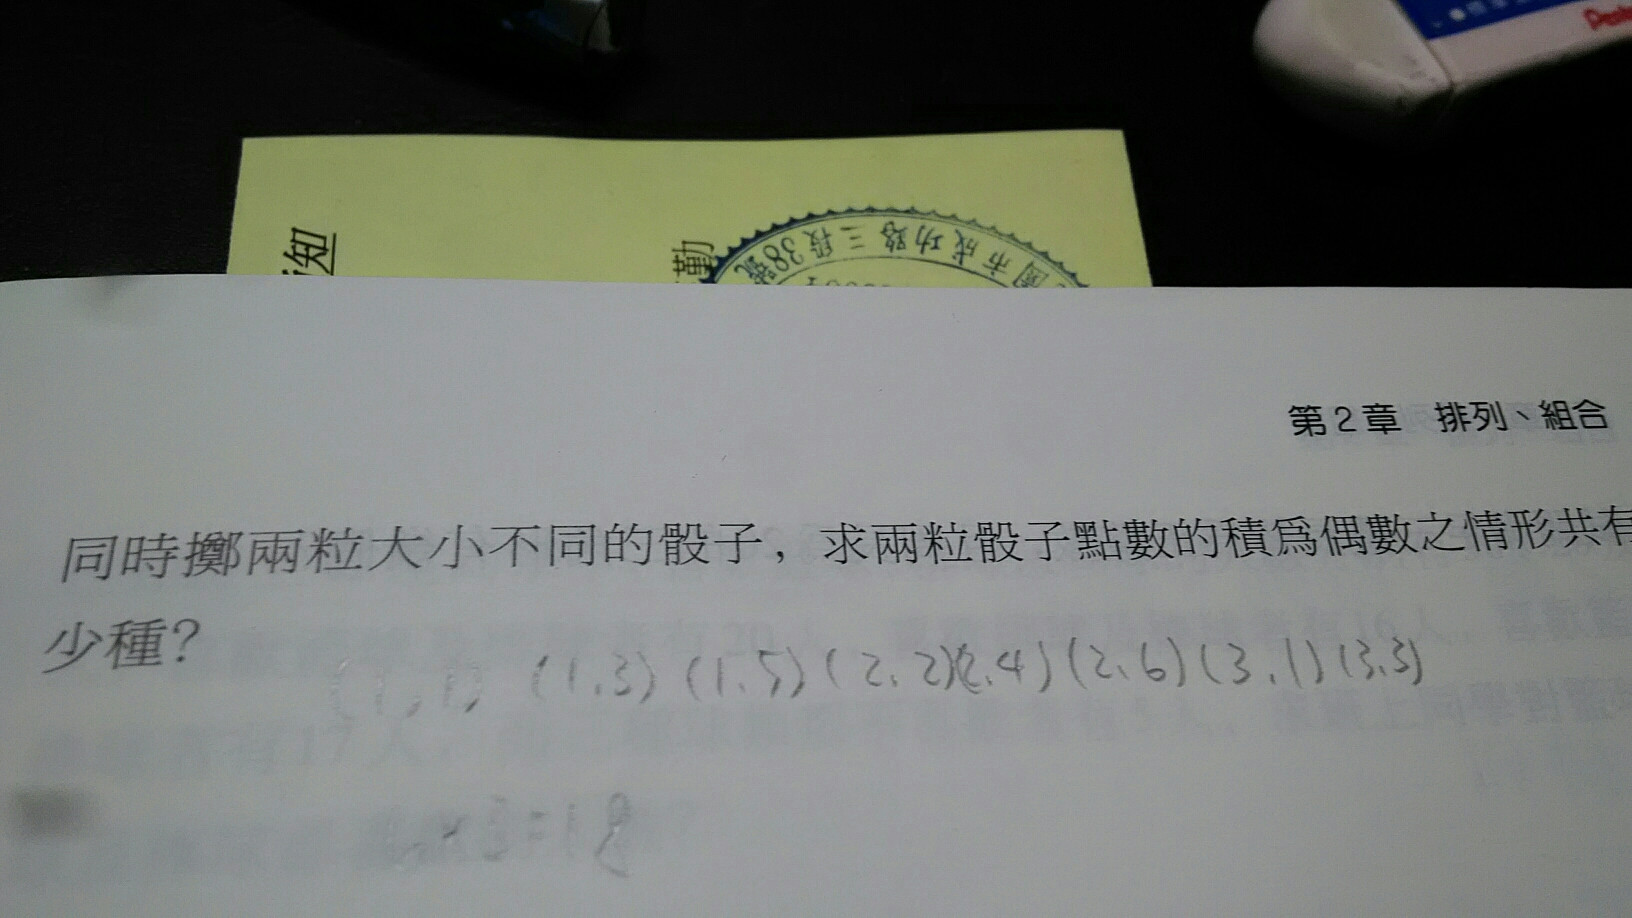 Pente
知
勤
園市成功路三段38號
第2章 排列、組合
同時擲兩粒大小不同的骰子，求兩粒骰子點數的積爲偶數之情形共有
少種？
(1,1) (1.3) (1.5) (2.2)(2.4) (2.6) (3.1) (3.3)
6×3=18